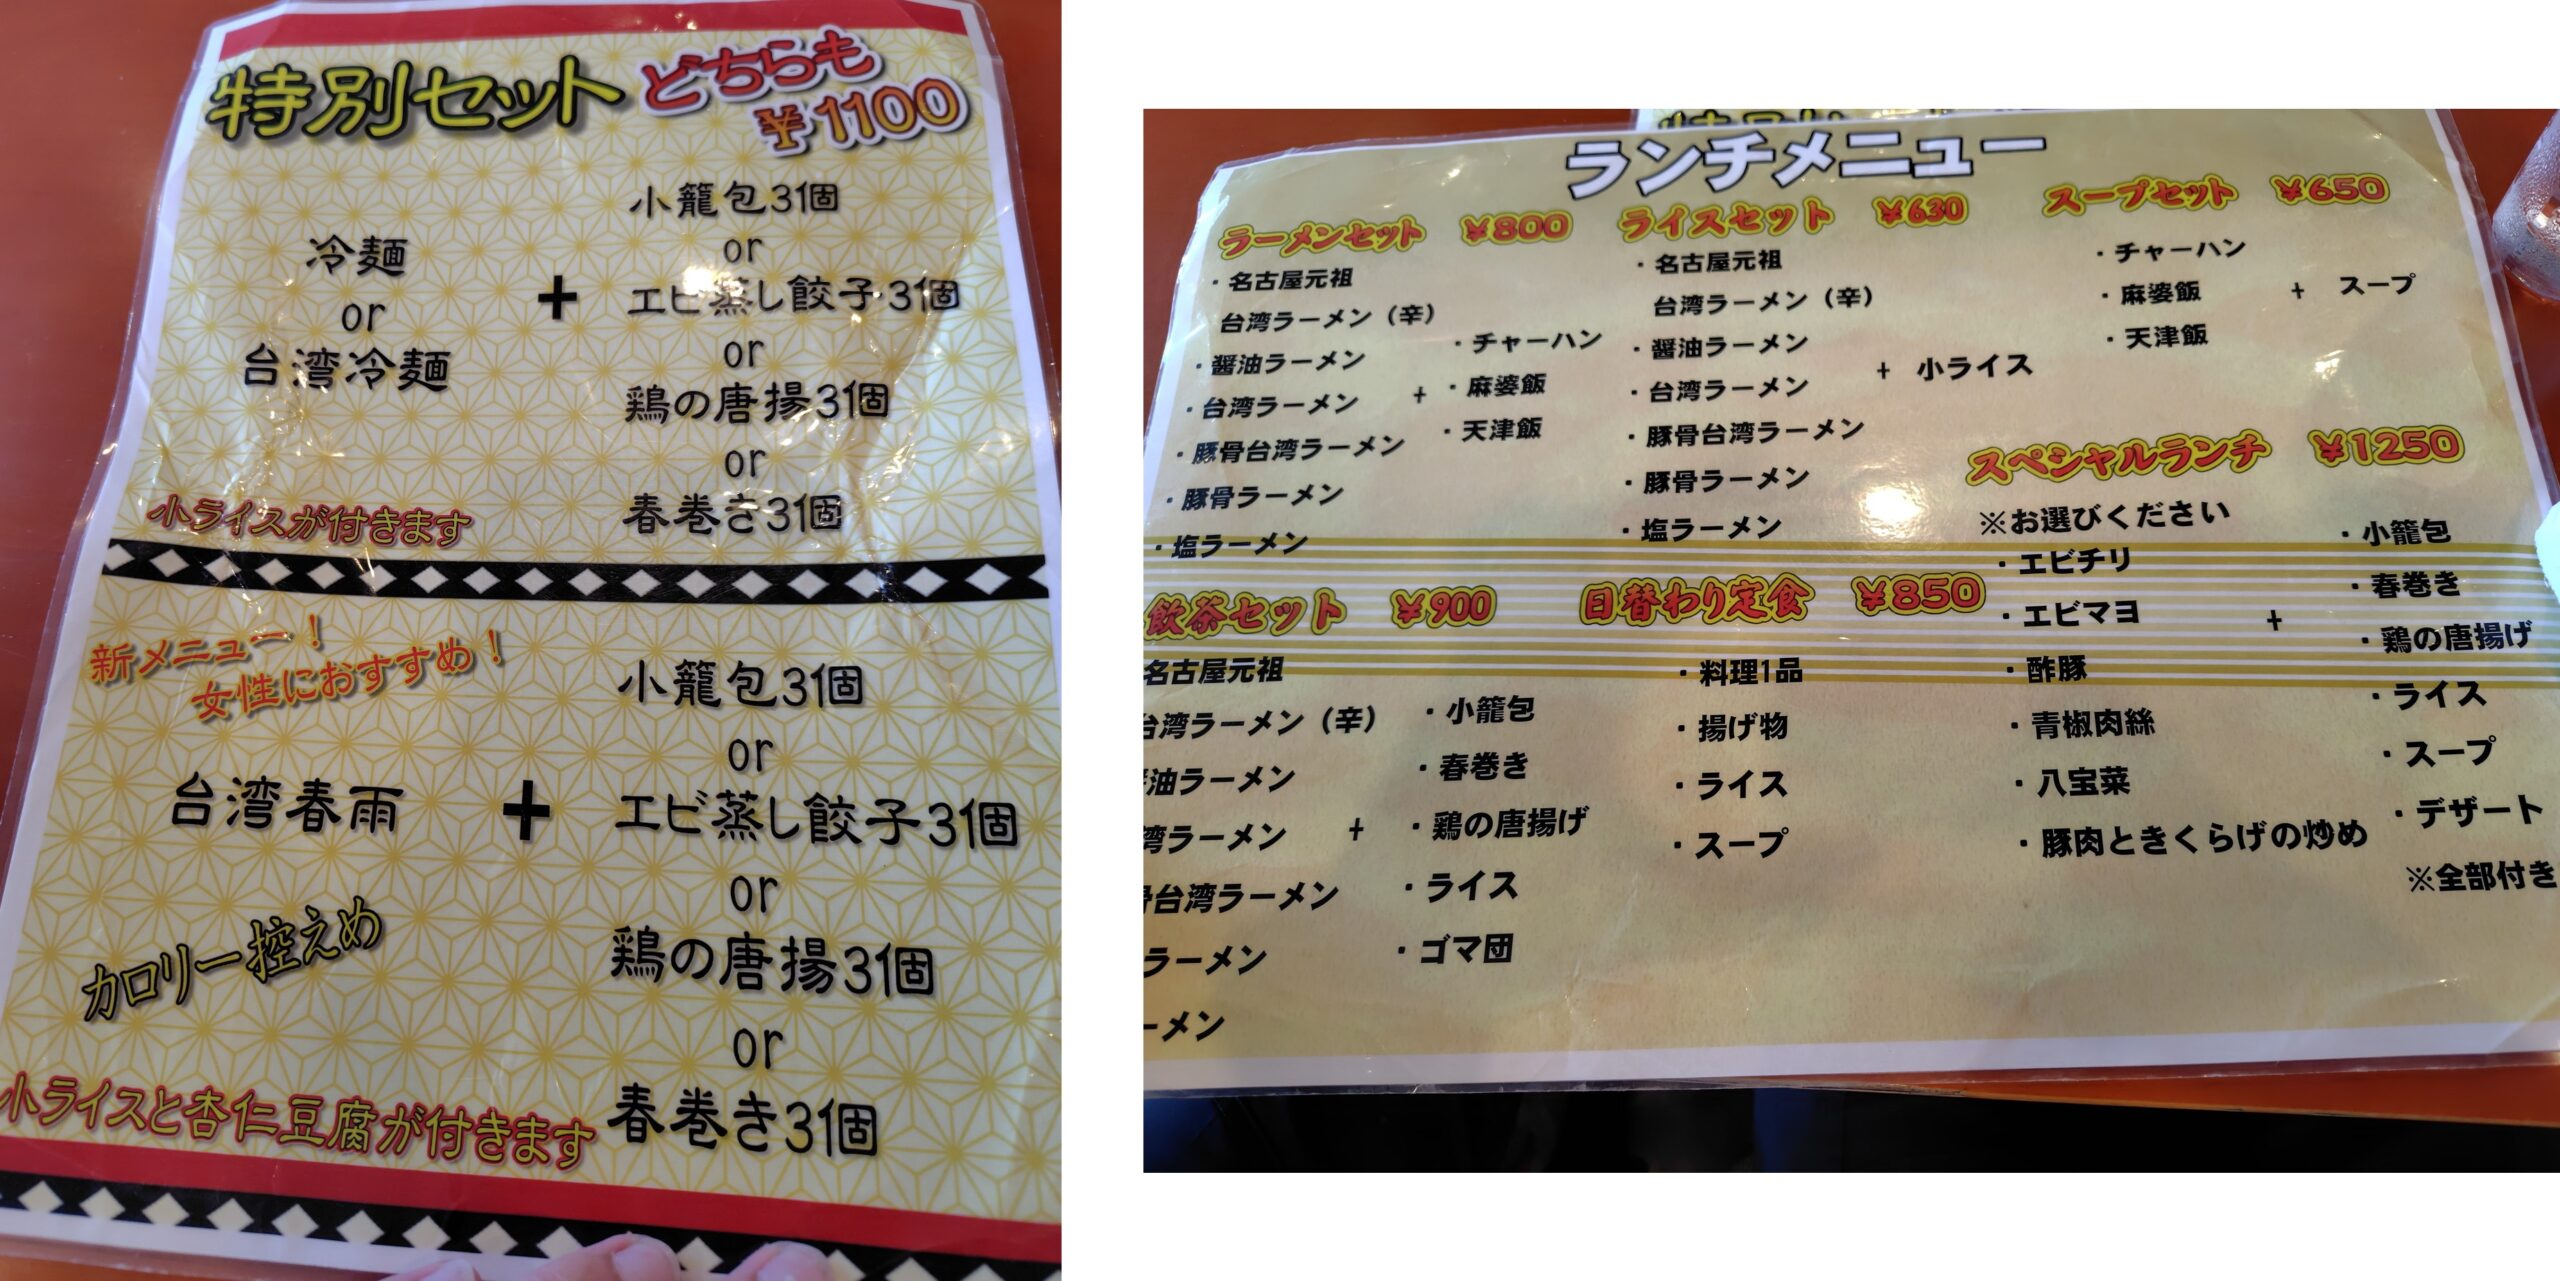 特別セット どちらも
¥1100
冷麺
or
台湾冷麺
+
小籠包3個
or
エビ蒸し餃子3個
or
鶏の唐揚3個
or
春巻き3個
小ライスが付きます
新メニュー!
女性におすすめ!
台湾春雨
+
小籠包3個
or
エビ蒸し餃子3個
or
鶏の唐揚3個
or
春巻き3個
カロリー控えめ
小ライスと杏仁豆腐が付きます
ランチメニュー
ラーメンセット ¥800
・名古屋元祖
台湾ラーメン(辛)
・醤油ラーメン
・台湾ラーメン
・豚骨台湾ラーメン
・豚骨ラーメン
・塩ラーメン
+
・チャーハン
・麻婆飯
・天津飯
ライスセット ¥630
・名古屋元祖
台湾ラーメン(辛)
・醤油ラーメン
・台湾ラーメン
・豚骨台湾ラーメン
・豚骨ラーメン
・塩ラーメン
+ 小ライス
スープセット ¥650
・チャーハン
・麻婆飯
・天津飯
+ スープ
飲茶セット ¥900
名古屋元祖
台湾ラーメン(辛)
油ラーメン
湾ラーメン
骨台湾ラーメン
ラーメン
ーメン
+
・小籠包
・春巻き
・鶏の唐揚げ
・ライス
・ゴマ団
日替わり定食 ¥850
・料理1品
・揚げ物
・ライス
・スープ
スペシャルランチ ¥1250
※お選びください
・エビチリ
・エビマヨ
・酢豚
・青椒肉絲
・八宝菜
・豚肉ときくらげの炒め
+
・小籠包
・春巻き
・鶏の唐揚げ
・ライス
・スープ
・デザート
※全部付き